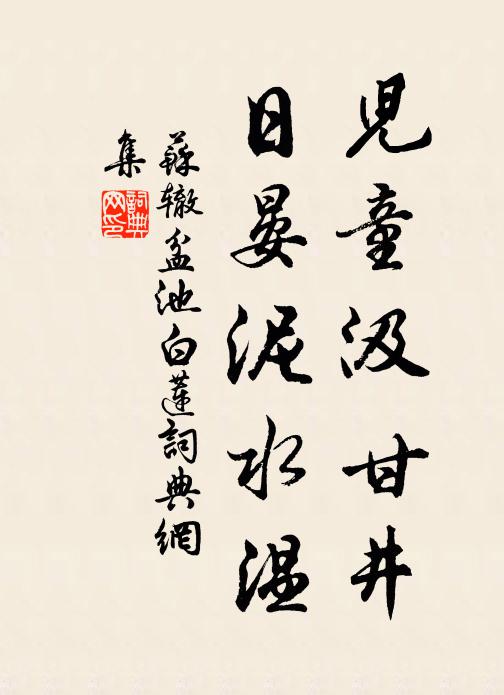 兒童汲甘井
日晏泥水温
蘇辙盆池白蓮詞典網
集
詞典网印